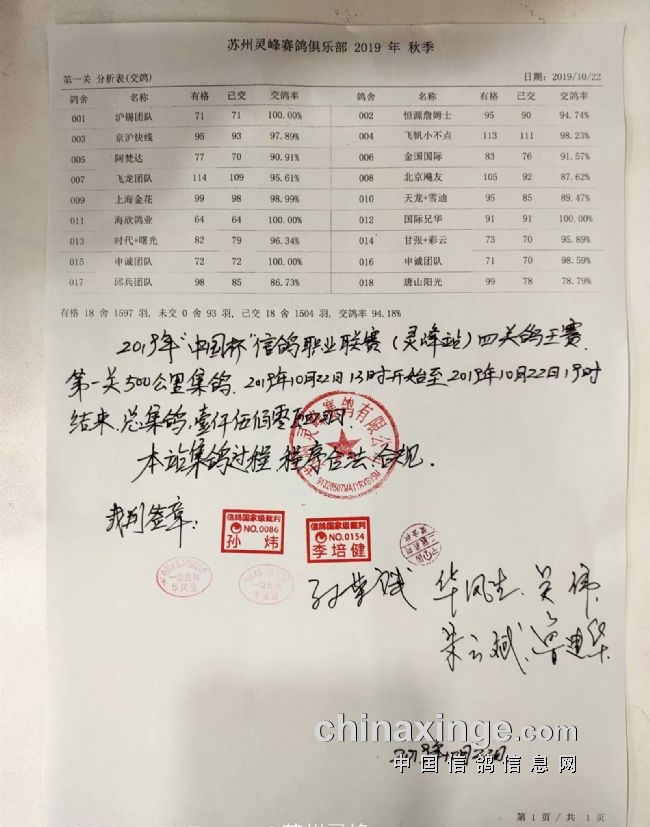 苏州灵峰赛鸽俱乐部 2019 年 秋季
第一关 分析表(交鸽) 日期: 2019/10/22
鸽舍 名称 有格 已交 交鸽率 鸽舍 名称 有格 已交 交鸽率
001 沪锡团队 71 71 100.00% 002 恒源詹姆士 95 90 94.74%
003 京沪快线 95 93 97.89% 004 飞帆小不点 113 111 98.23%
005 阿梵达 77 70 90.91% 006 金国国际 83 76 91.57%
007 飞龙团队 114 109 95.61% 008 北京飚友 105 92 87.62%
009 上海金花 99 98 98.99% 010 天龙+雪迪 95 85 89.47%
011 海欣鸽业 64 64 100.00% 012 国际兄华 91 91 100.00%
013 时代+曙光 82 79 96.34% 014 甘张+彩云 73 70 95.89%
015 申诚团队 72 72 100.00% 016 申诚团队 71 70 98.59%
017 邱兵团队 98 85 86.73% 018 唐山阳光 99 78 78.79%
有格 18 舍 1597 羽, 未交 0 舍 93 羽, 已交 18 舍 1504 羽, 交鸽率 94.18%
2019年"中国杯"信鸽职业联赛(灵峰站)四关鸽王赛
第一关500公里集鸽. 2019年10月22日13时开始至2019年10月22日19时
结束.总集鸽,壹仟伍佰零肆羽.
本站集鸽过程,程序合法、合规.
裁判签章:
信鸽国家级裁判
NO.0086
孙 炜
信鸽国家级裁判
NO.0154
李培健
一级裁判
华凤生
一级裁判
孙荣诚 华凤生、吴伟
朱云斌、鲁建华
chinaxinge.com
中国信鸽信息网
第 1 页/ 共 1 页